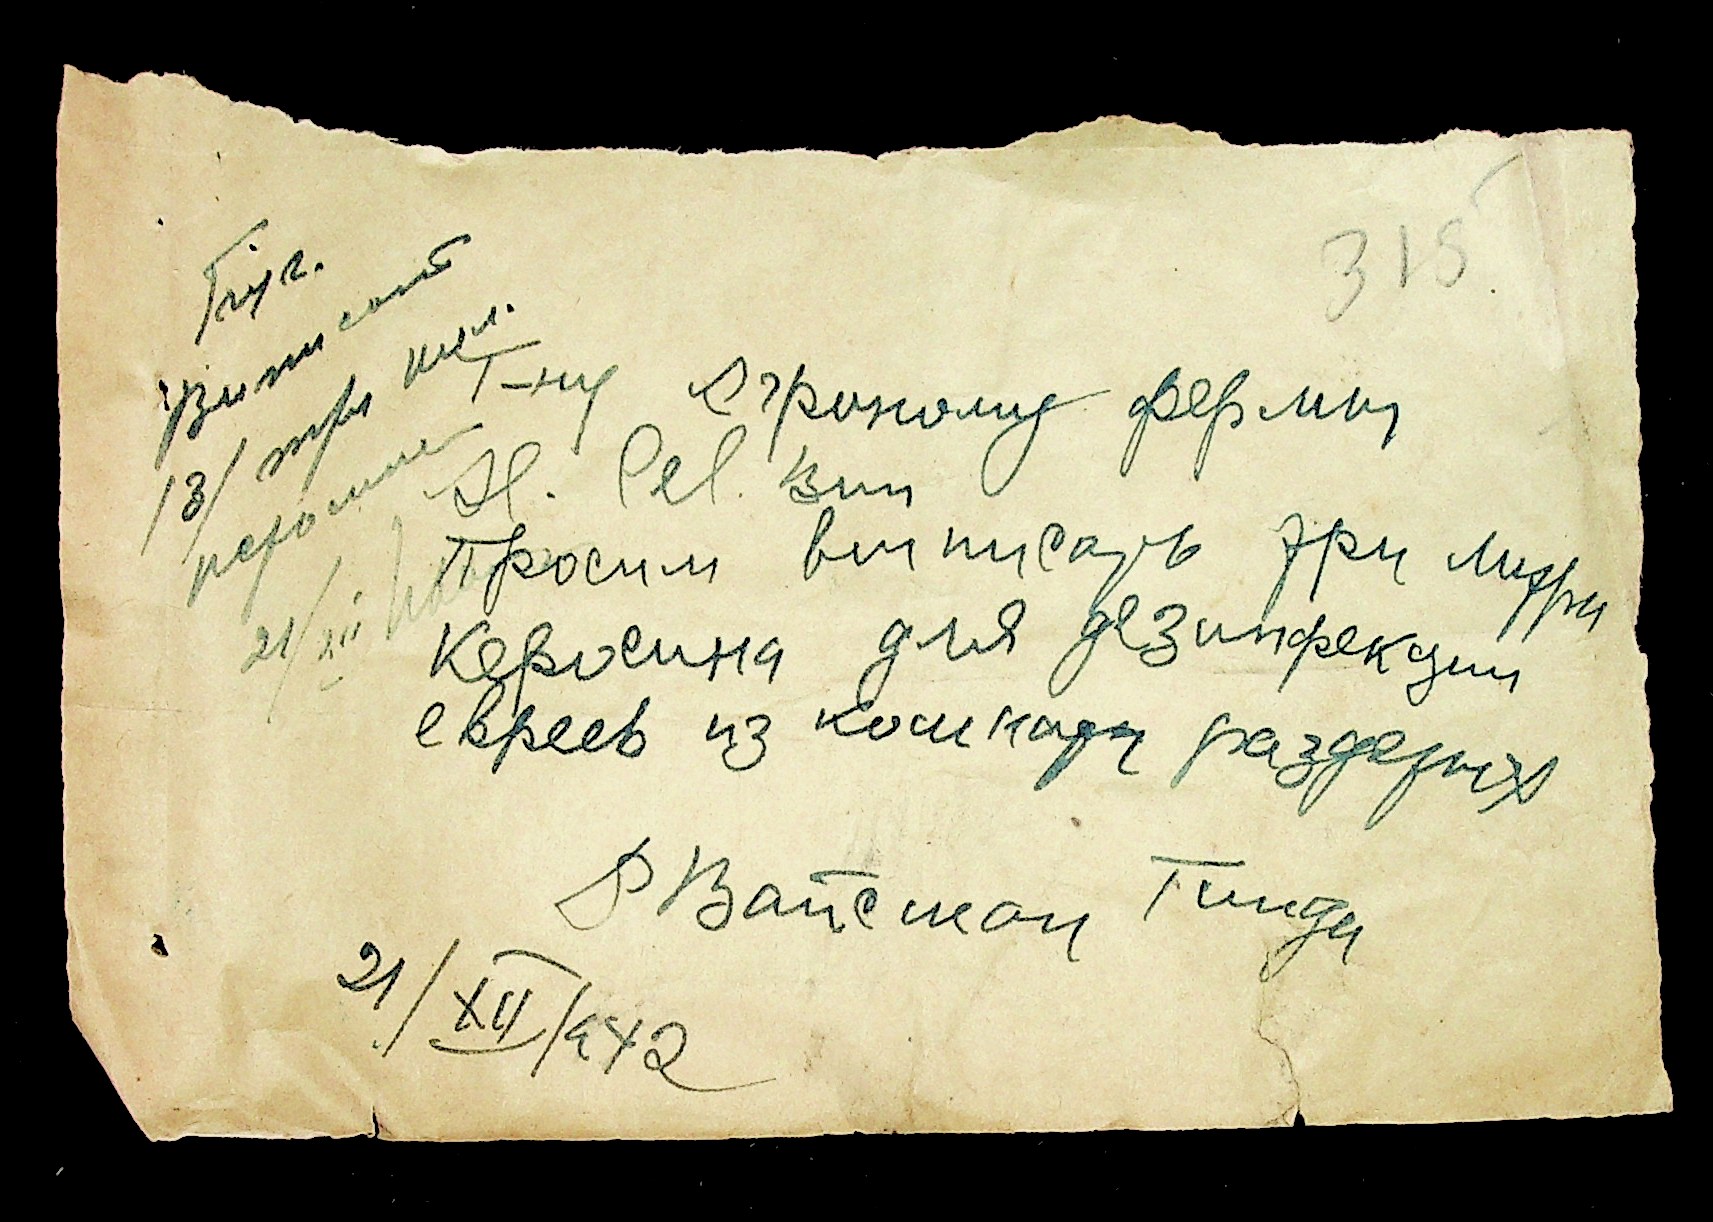 315
Бух.
Выписать
/3/ три кил.
керосина
21/XII
Г-ну Агроному фермы
Просим выписать три литры
керосина для дезинфекции
евреев из кошкары раздетых
Вайсман Гинда
21/XII/942